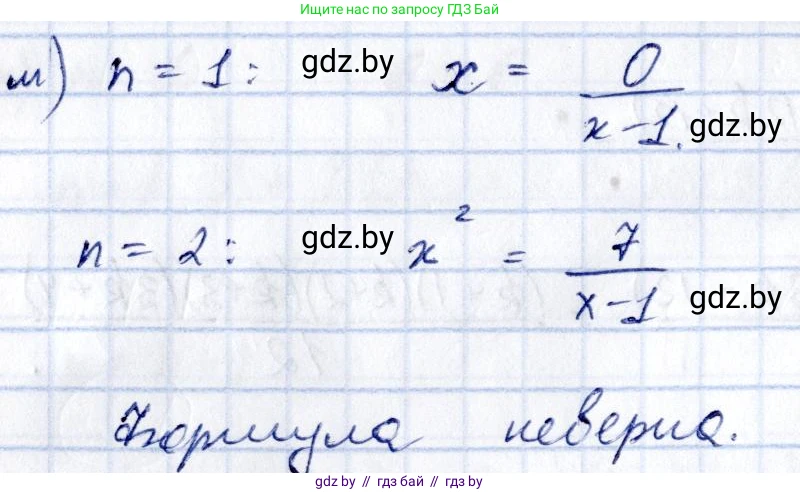 Ищите нас по запросу ГДЗ Бай
м) n = 1: gdz.by x = 0/(x-1) gdz.by
n = 2: gdz.by x² = 7/(x-1) gdz.by
Формула неверна.
gdz.by // гдз бай // гдз by